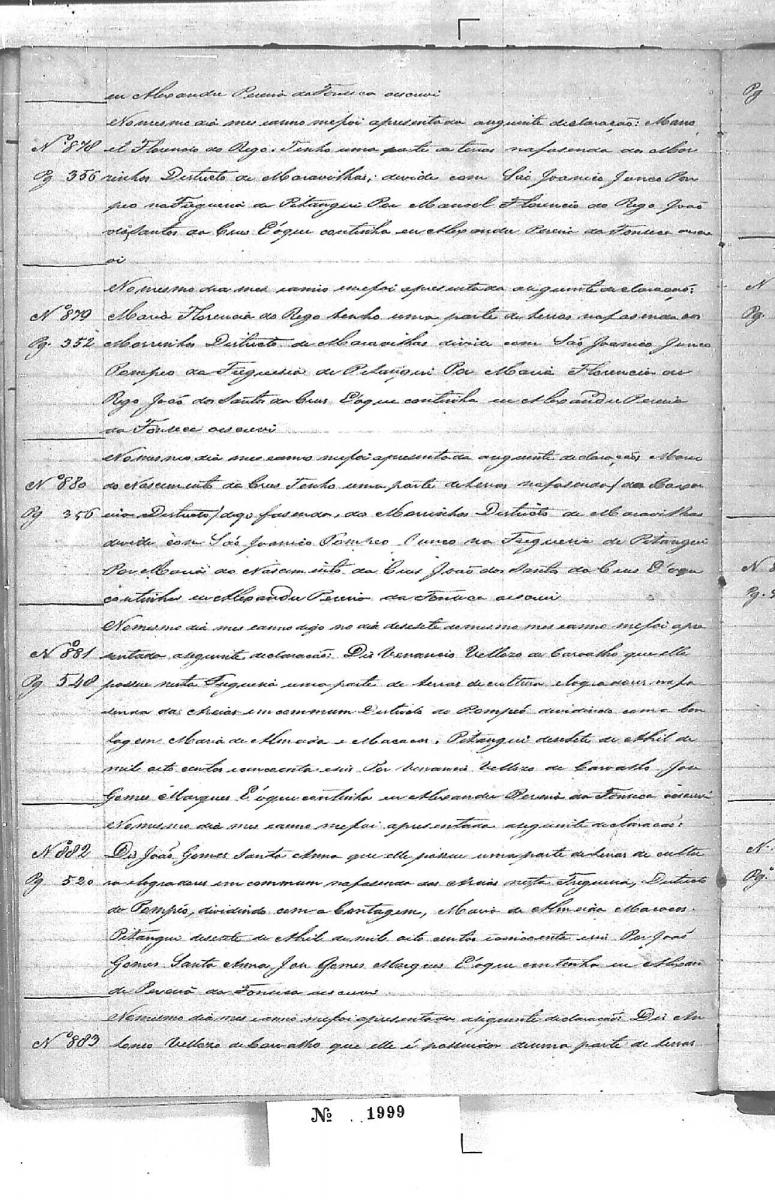 eu Alexandre Pereira da Fonseca escrevi
No mesmo dia mes e anno me foi apresentada a seguinte declaração: Mano
Nº 878 el Florencio do Rego. Tenho uma parte de terras na fasenda dos Mor
Pg 356 rinhos Districto de Maravilhas; divide com São Joanico, Junco Pom
peo na Freguesia de Pitangui Por Manoel Florencio do Rego, João
dos Santos da Crus E o que continha eu Alexandre Pereira da Fonseca escre
vi
No mesmo dia mes e anno me foi apresentada a seguinte declaração:
Nº 879 Maria Florencia do Rego tenho uma parte de terras na fasenda dos
Pg. 352 Morrinhos Districto de Maravilhas divide com São Joanico Junco
Pompeo da Freguesia de Pitangui Por Maria Florencia do
Rego João dos Santos da Crus E o que continha eu Alexandre Pereira
da Fonseca escrevi
No mesmo dia mes e anno me foi apresentada a seguinte declaração Maria
Nº 880 do Nascimento da Crus Tenho uma parte de terras na fasenda / das
Pg 356 Districto / digo fasenda, do Morrinhos Districto de Maravilhas
divide com São Joanico Pompeo Junco na Freguesia de Pitangui
Por Maria do Nascimento da Crus João dos Santos da Crus E o que
continha eu Alexandre Pereira da Fonseca escrevi
No mesmo dia mes e anno digo no dia desesete do mesmo mes e anno me foi apre
Nº 881 sentada a seguinte declaração: Dis Venancio Vellozo de Carvalho que elle
Pg 548 possue nesta Freguesia uma parte de terras de cultura e logradores na fa
senda das Areias em commum Districto do Pompeo dividindo com a Con
tagem Maria de Almeida e Macacos. Pitangui desesete de Abril de
mil oito centos e cincoenta e seis Por Venancio Vellozo de Carvalho Jose
Gomes Marques E o que continha eu Alexandre Pereira da Fonseca escrevi
No mesmo dia mes e anno me foi apresentada a seguinte declaração:
Nº 882 Dis João Gomes Santa Anna que elle possue uma parte de terras de cultu
Pg 520 ra e logradores em commum na fasenda das Areias nesta Freguesia, Districto
do Pompéo, dividindo com a Contagem, Maria de Almeida Macacos.
Pitangui desesete de Abril de mil oito centos e cincoenta e seis Por João
Gomes Santa Anna, Jose Gomes Marques E o que continha eu Alexan
dre Pereira da Fonseca escrevi
No mesmo dia mes e anno me foi apresentada a seguinte declaração Dis An
Nº 883 tonio Vellozo de Carvalho que elle é possuidor de uma parte de terras
Nº 1999
Pg
N
Pg.
Nº
Pg.
Nº
Pgº